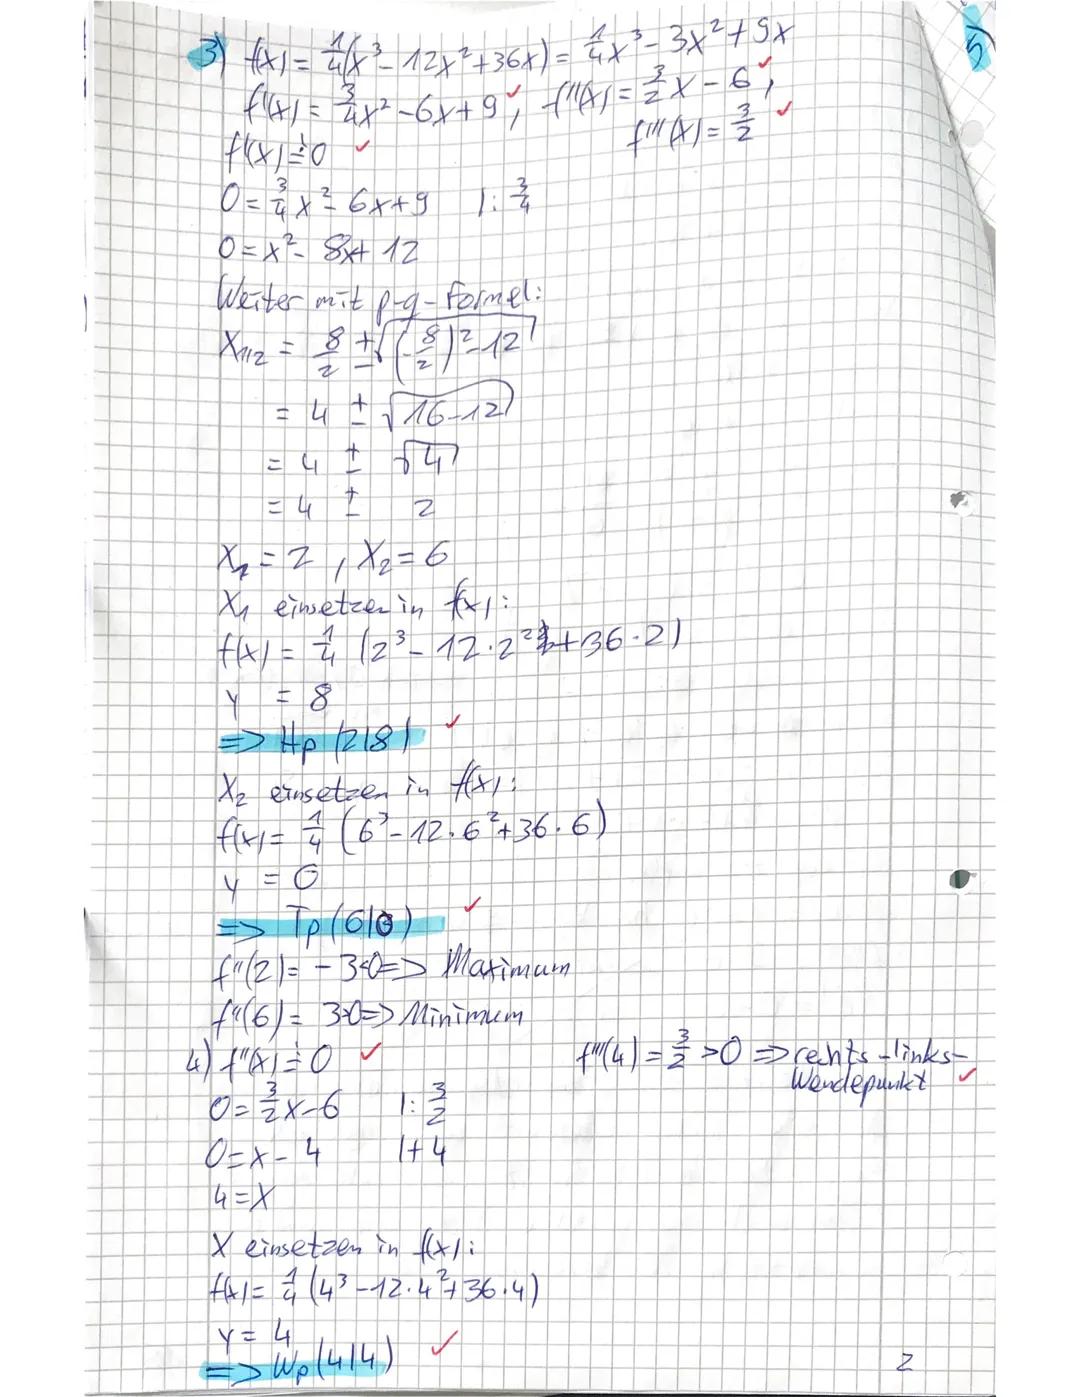 3) f(x) = 1/4(x³ - 12x² + 36x) = 1/4x³ - 3x² + 9x
5)
f'(x) = 3/4x² - 6x + 9 ✓; f''(x) = 3/2x - 6 ✓;
f'''(x) = 3/2 ✓
f'(x) != 0 ✓
0 = 3/4x² - 6x + 9 |: 3/4
0 = x² - 8x + 12
Weiter mit p-q-Formel:
x₁/₂ = 8/2 ± √((-8/2)² - 12)
= 4 ± √(16-12)
= 4 ± √4
= 4 ± 2
x₁ = 2, x₂ = 6
x₁ einsetzen in f(x):
f(x) = 1/4 (2³ - 12·2² + 36·2)
y = 8
=> Hp (2|8) ✓
x₂ einsetzen in f(x):
f(x) = 1/4 (6³ - 12·6² + 36·6)
y = 0
=> Tp (6|0) ✓
f''(2) = -3<0 => Maximum
f''(6) = 3>0 => Minimum
4) f''(x) != 0 ✓
f'''(4) = 3/2 > 0 => rechts-links-
Wendepunkt ✓
0 = 3/2x - 6 |: 3/2
0 = x - 4 |+4
4 = x
x einsetzen in f(x):
f(x) = 1/4 (4³ - 12·4² + 36·4)
y = 4
=> Wp (4|4) ✓
2